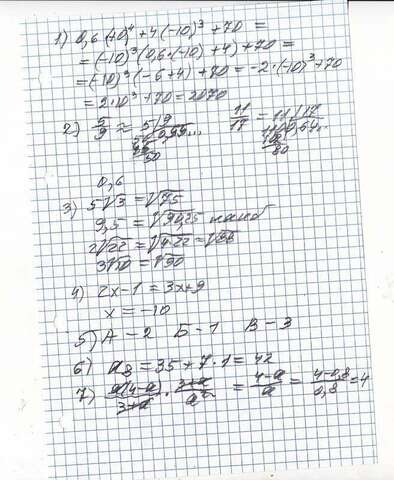 1) 0,6·(-10)⁴ + 4(-10)³ + 70 =
= (-10)³(0,6·(-10) + 4) + 70 =
= (-10)³(-6+4) + 70 = -2·(-10)³ + 70
= 2·10³ + 70 = 2070
2) 5/9 ≈ 11/17 = 11
50
80
0,6
3) 5√3 = √75
9,5 = √90,25 наиб
2√22 = √4·22 = √88
3√10 = √90
4) 2x - 1 = 3x + 9
x = -10
5) А - 2 Б - 1 В - 3
6) a₈ = 35 + 7·1 = 42
7) a(4-a)/(3+a) · (3+a)/a² = (4-a)/a = (4-0,8)/0,8 = 4